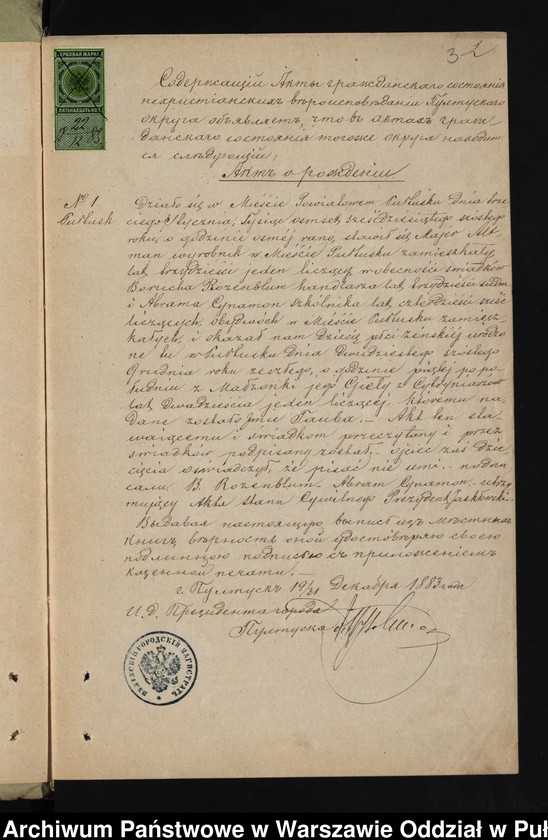 32
ГЕРБОВАЯ МАРКА
ПЯТНАДЦАТЬ КОП.
22
12 83
Содержащій Акты гражданскаго состоянія
нехристіанскихъ вѣроисповѣданій Пултускаго
округа объявляетъ, что въ актахъ граж-
данскаго состоянія тогоже округа находит-
ся слѣдующій:
Актъ о рожденіи
№ 1
Pułtusk
Działo się w Mieście Powiatowem Pułtusku Dnia trze-
ciego Stycznia, tysiąc ośmset sześćdziesiątego szóstego
roku, o godzinie ósméj rano, stawił się Majer Alt-
man wyrobnik w Mieście Pułtusku zamieszkały
lat trzydzieści jeden liczący, w obecności świadków
Borucha Rozenblum handlarza lat trzydzieści siedm
i Abrama Cynamon szkólnika lat czterdzieści sześć
liczących, obydwóch w Mieście Pułtusku zamiesz-
kałych, i okazał nam Dziecię płci żeńskiéj urodzo-
ne tu w Pułtusku Dnia Dwudziestego szóstego
Grudnia roku zeszłego, o godzinie piątéj popo-
łudniu z Małżonki jego Giełty z Cytryniarzów
lat Dwadzieścia jeden liczącéj, któremu na-
dane zostało imie Tauba. — Akt ten sta-
waiącemu i świadkom przeczytany i przez
świadków podpisany został. — Ojciec zaś Dzie-
cięcia oświadczył, że pisać nie umi. — podpi-
sali: B. Rozenblum. Abram Cynamon. — utrzy-
mujący Akta Stanu Cywilnego Prezydent Jaskłowski. —
Выдавая настоящую выпись изъ мѣстныхъ
книгъ, вѣрность оной удостовѣряю своею
подлинною подписью съ приложеніемъ
казенной печати. —
г. Пултускъ 19/31 Декабря 1883 года
И. Д. Президента города
Пултуска
ПУЛТУСКІЙ ГОРОДСКІЙ МАГИСТРАТЪ
Archiwum Państwowe w Warszawie Oddział w Puł